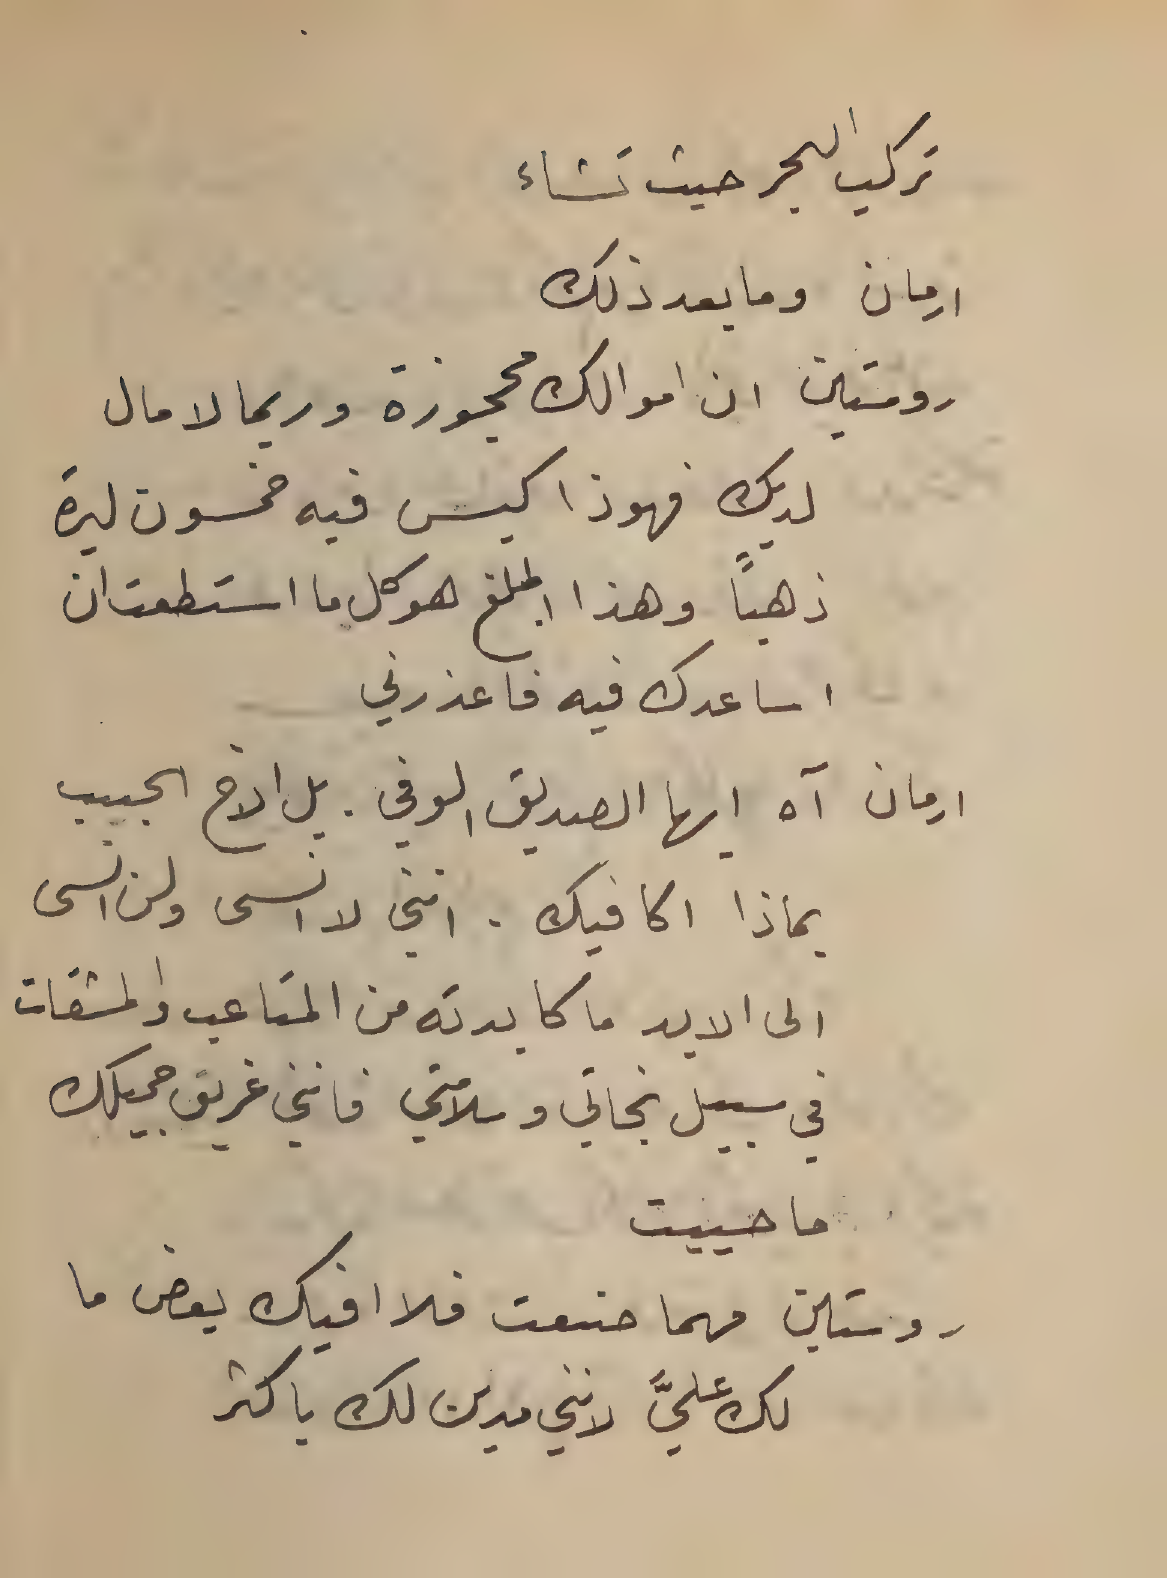 تركب البحر حيث تشاء
ارمان وما بعد ذلك
روستين ان اموالك محجوزة وربما لا مال
لديك فهوذا كيس فيه خمسون ليرة
ذهباً وهذا المبلغ هو كل ما استطعت ان
اساعدك فيه فاعذرني
ارمان آه ايها الصديق الوفي . بل الاخ الحبيب
بماذا اكافيك . انني لا انسى ولن انسى
الى الابد ما كابدته من المتاعب والمشقات
في سبيل نجاتي وسلامتي فانني غريق جميلك
ما حييت
روستين مهما صنعت فلا افيك بعض ما
لك عليَّ لانني مدين لك باكثر